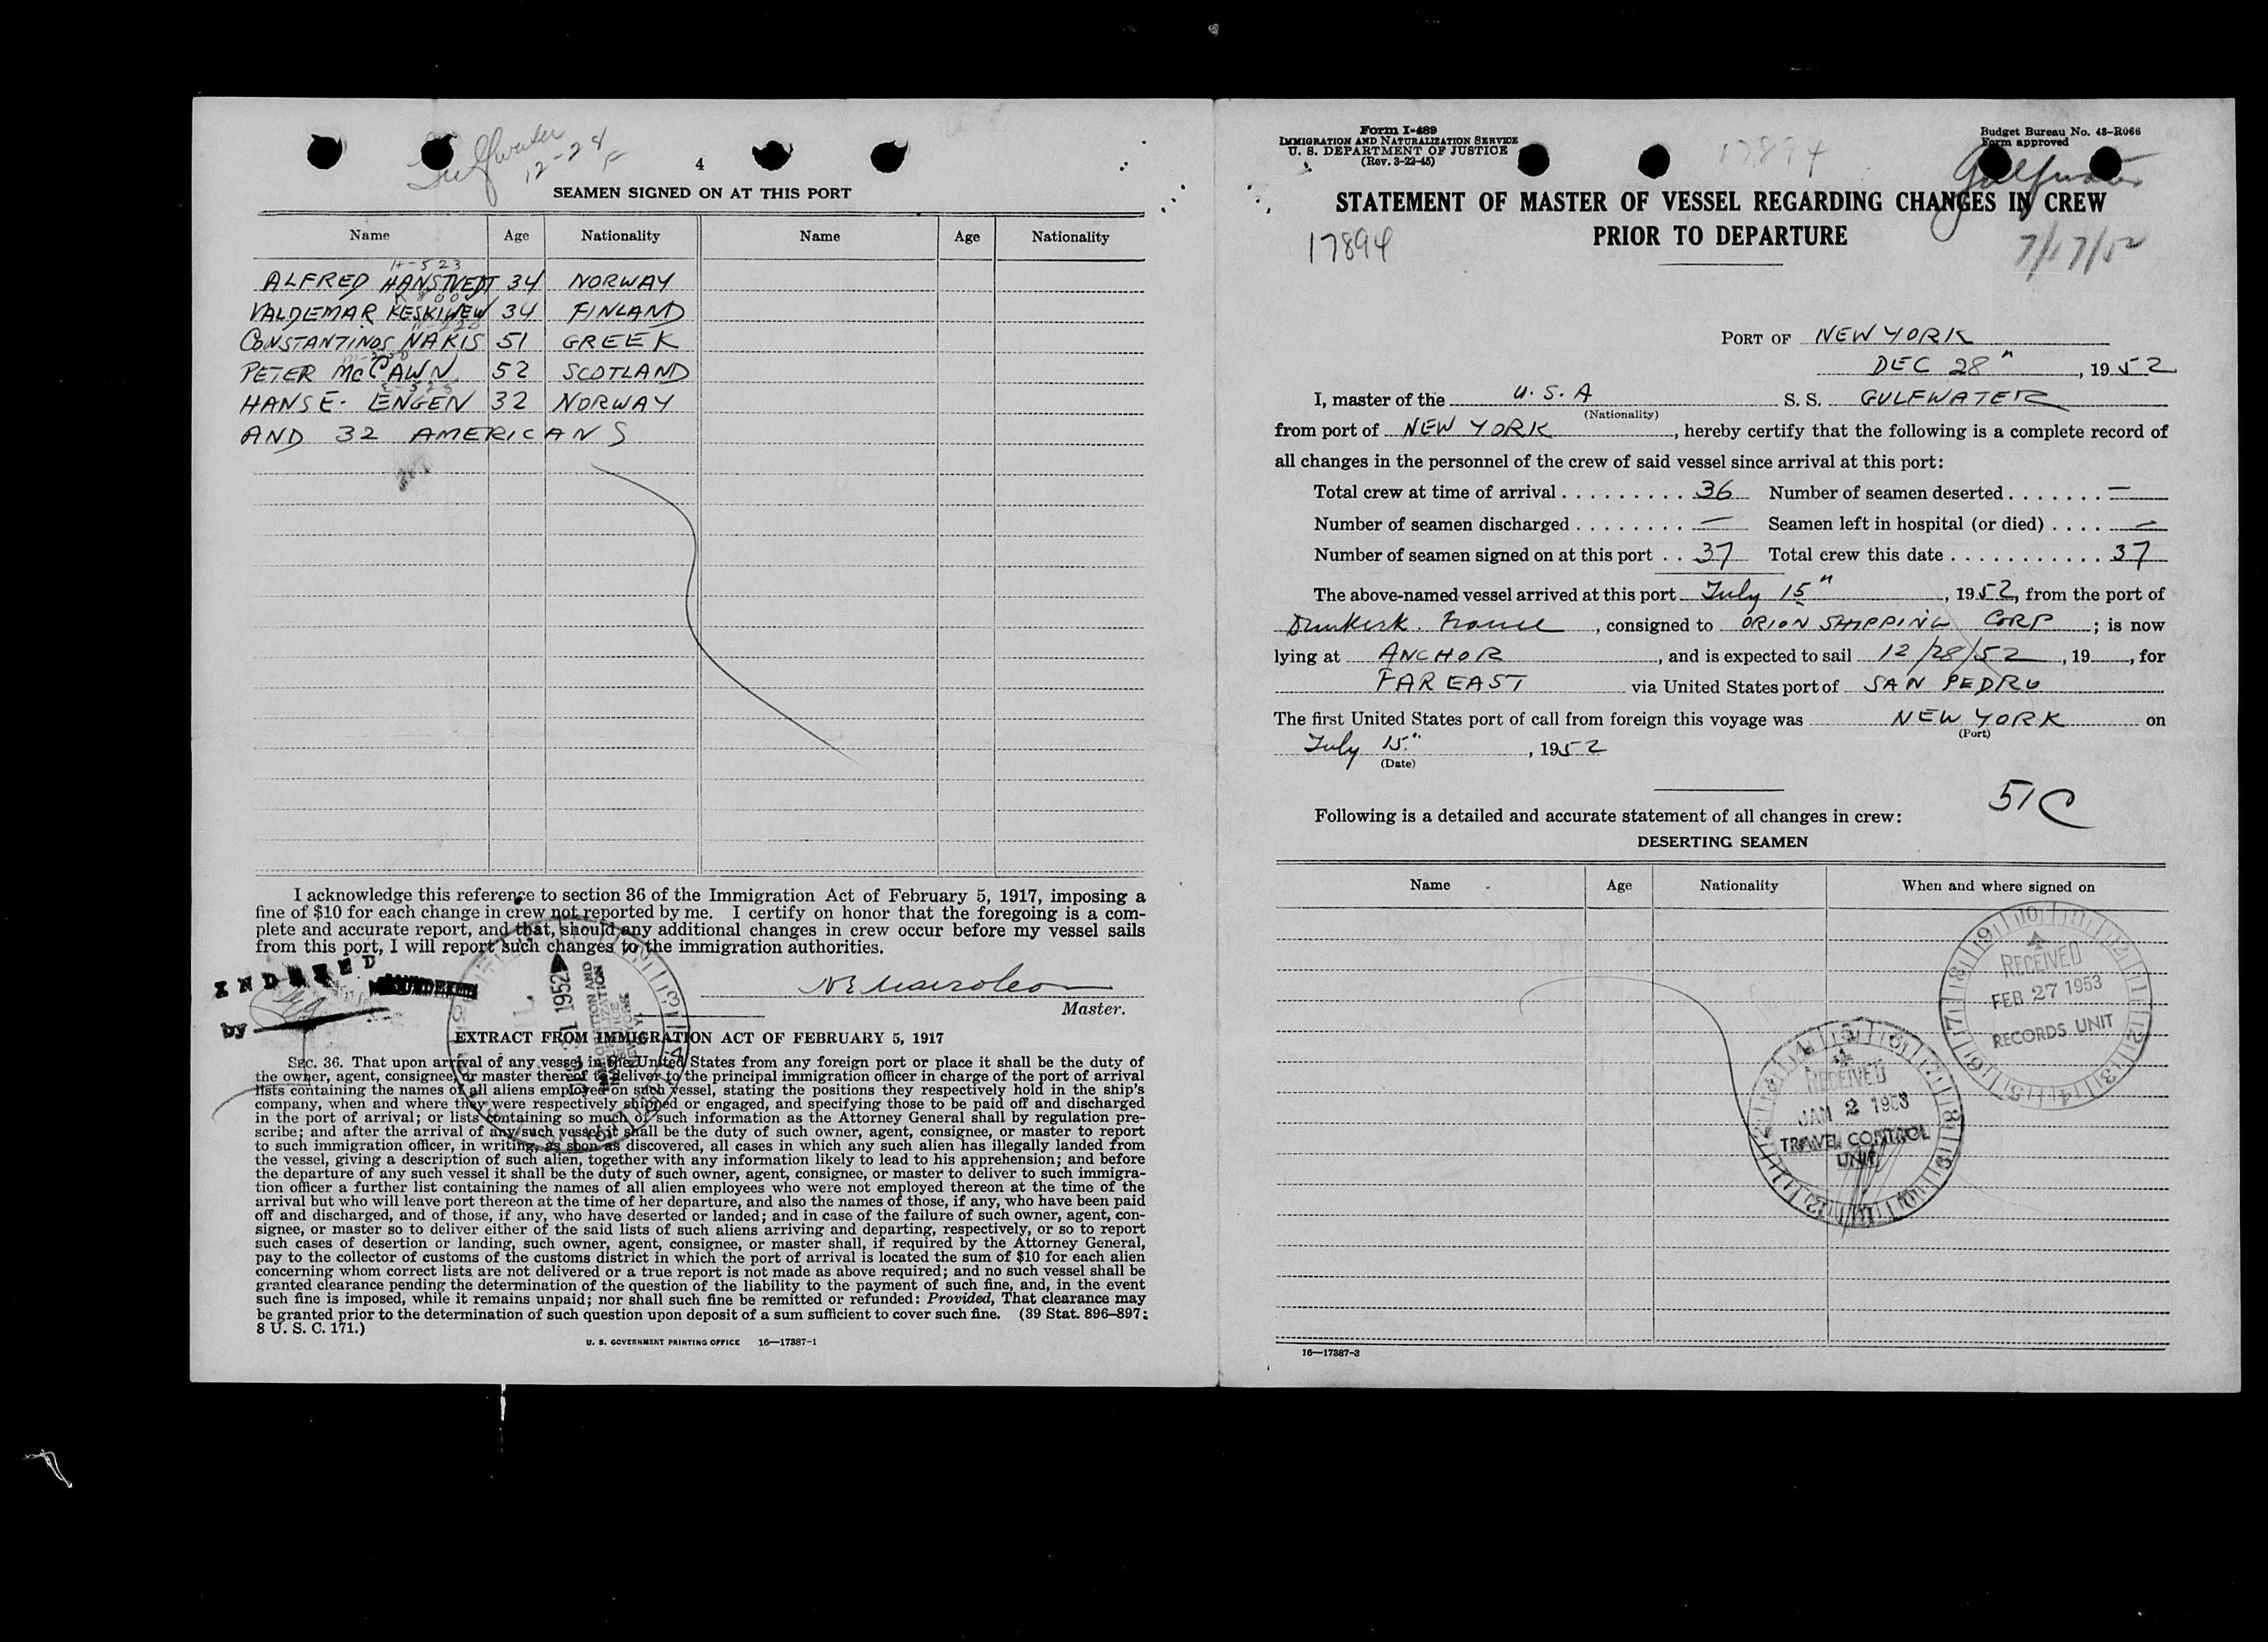 Gulfwater
12-28
4
SEAMEN SIGNED ON AT THIS PORT
Name Age Nationality Name Age Nationality
H-523
ALFRED HANSTVEDT 34 NORWAY
VALDEMAR KESKINEW 34 FINLAND
N-220
CONSTANTINOS NAKIS 51 GREEK
PETER McCAWN 52 SCOTLAND
E-525
HANS E. ENGEN 32 NORWAY
AND 32 AMERICANS
I acknowledge this reference to section 36 of the Immigration Act of February 5, 1917, imposing a
fine of $10 for each change in crew not reported by me. I certify on honor that the foregoing is a com-
plete and accurate report, and that, should any additional changes in crew occur before my vessel sails
from this port, I will report such changes to the immigration authorities.
INDEXED
by
Master.
EXTRACT FROM IMMIGRATION ACT OF FEBRUARY 5, 1917
SEC. 36. That upon arrival of any vessel in the United States from any foreign port or place it shall be the duty of
the owner, agent, consignee, or master thereof to deliver to the principal immigration officer in charge of the port of arrival
lists containing the names of all aliens employed on such vessel, stating the positions they respectively hold in the ship's
company, when and where they were respectively shipped or engaged, and specifying those to be paid off and discharged
in the port of arrival; or lists containing so much of such information as the Attorney General shall by regulation pre-
scribe; and after the arrival of any such vessel it shall be the duty of such owner, agent, consignee, or master to report
to such immigration officer, in writing, as soon as discovered, all cases in which any such alien has illegally landed from
the vessel, giving a description of such alien, together with any information likely to lead to his apprehension; and before
the departure of any such vessel it shall be the duty of such owner, agent, consignee, or master to deliver to such immigra-
tion officer a further list containing the names of all alien employees who were not employed thereon at the time of the
arrival but who will leave port thereon at the time of her departure, and also the names of those, if any, who have been paid
off and discharged, and of those, if any, who have deserted or landed; and in case of the failure of such owner, agent, con-
signee, or master so to deliver either of the said lists of such aliens arriving and departing, respectively, or so to report
such cases of desertion or landing, such owner, agent, consignee, or master shall, if required by the Attorney General,
pay to the collector of customs of the customs district in which the port of arrival is located the sum of $10 for each alien
concerning whom correct lists are not delivered or a true report is not made as above required; and no such vessel shall be
granted clearance pending the determination of the question of the liability to the payment of such fine, and, in the event
such fine is imposed, while it remains unpaid; nor shall such fine be remitted or refunded: Provided, That clearance may
be granted prior to the determination of such question upon deposit of a sum sufficient to cover such fine. (39 Stat. 896–897;
8 U. S. C. 171.)
U. S. GOVERNMENT PRINTING OFFICE 16—17387-1
Form I-489
IMMIGRATION AND NATURALIZATION SERVICE
U. S. DEPARTMENT OF JUSTICE
(Rev. 3-22-45)
17894
Budget Bureau No. 43-R066
Form approved
Gulfwater
STATEMENT OF MASTER OF VESSEL REGARDING CHANGES IN CREW
PRIOR TO DEPARTURE
17894
7/17/52
PORT OF NEW YORK
DEC 28", 1952
I, master of the U.S.A S. S. GULFWATER
(Nationality)
from port of NEW YORK, hereby certify that the following is a complete record of
all changes in the personnel of the crew of said vessel since arrival at this port:
Total crew at time of arrival 36 Number of seamen deserted —
Number of seamen discharged — Seamen left in hospital (or died) —
Number of seamen signed on at this port 37 Total crew this date 37
The above-named vessel arrived at this port July 15", 1952, from the port of
Dunkerk. France, consigned to ORION SHIPPING CORP; is now
lying at ANCHOR, and is expected to sail 12/28/52, 19, for
FAR EAST via United States port of SAN PEDRO
The first United States port of call from foreign this voyage was NEW YORK on
(Port)
July 15", 1952
(Date)
51C
Following is a detailed and accurate statement of all changes in crew:
DESERTING SEAMEN
Name Age Nationality When and where signed on
RECEIVED
FEB 27 1953
RECORDS UNIT
RECEIVED
JAN 2 1953
TRAVEL CONTROL
UNIT
16—17387-3